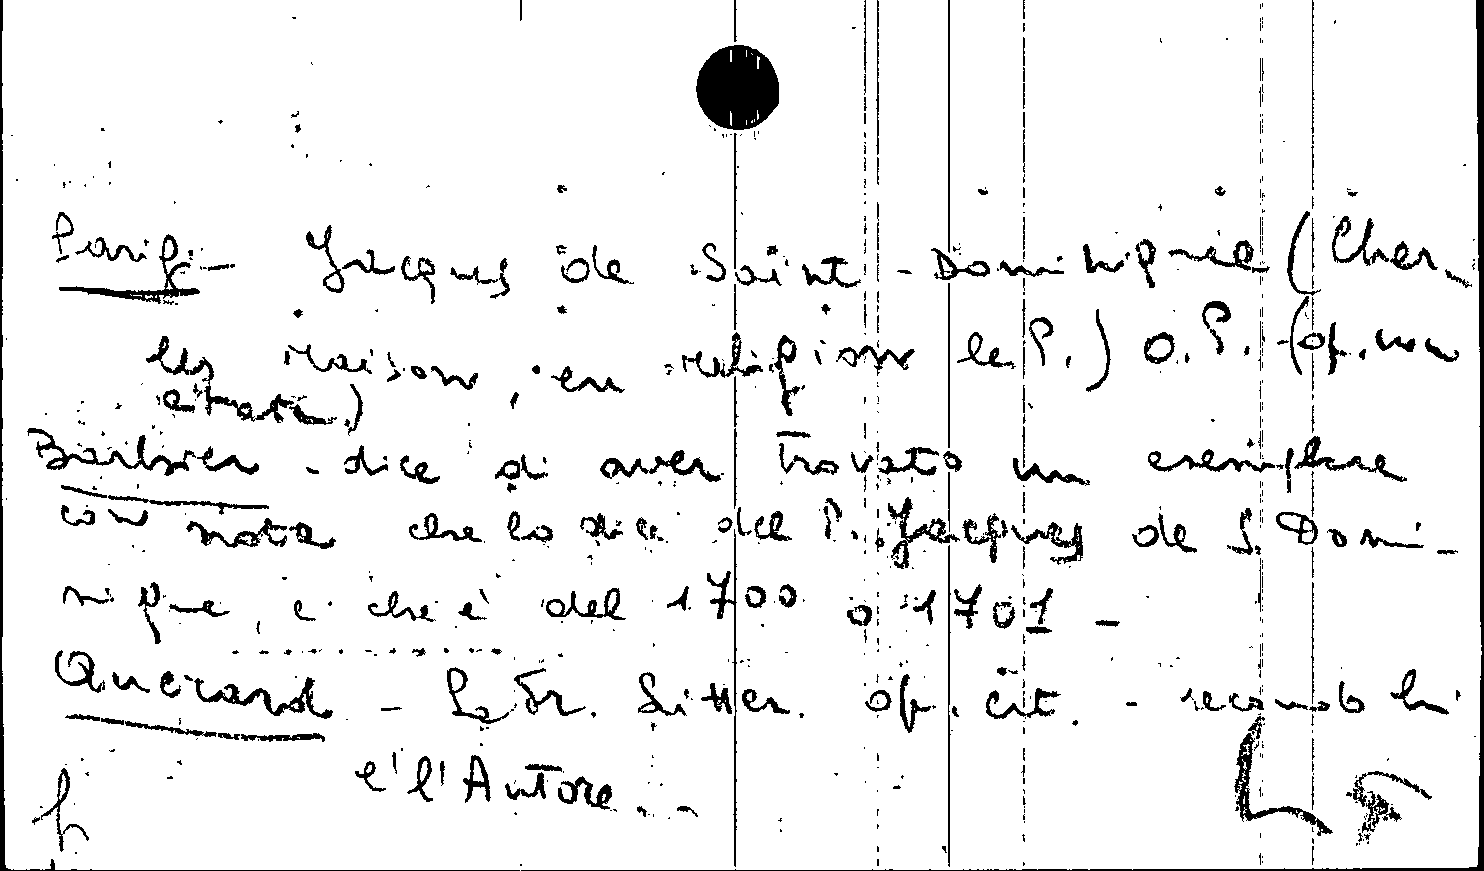 Parigi - Jacques de Saint-Dominique (Char-
les Maison, en religion le P.) O.P. (op. non
citata)
Barbier - dice di aver trovato un esemplare
con nota che lo dice del P. Jacques de S. Domi-
nique, e che è del 1700 o 1701 -
Querard - La Fr. Litter. op. cit. - secondo lui
è l'Autore. -